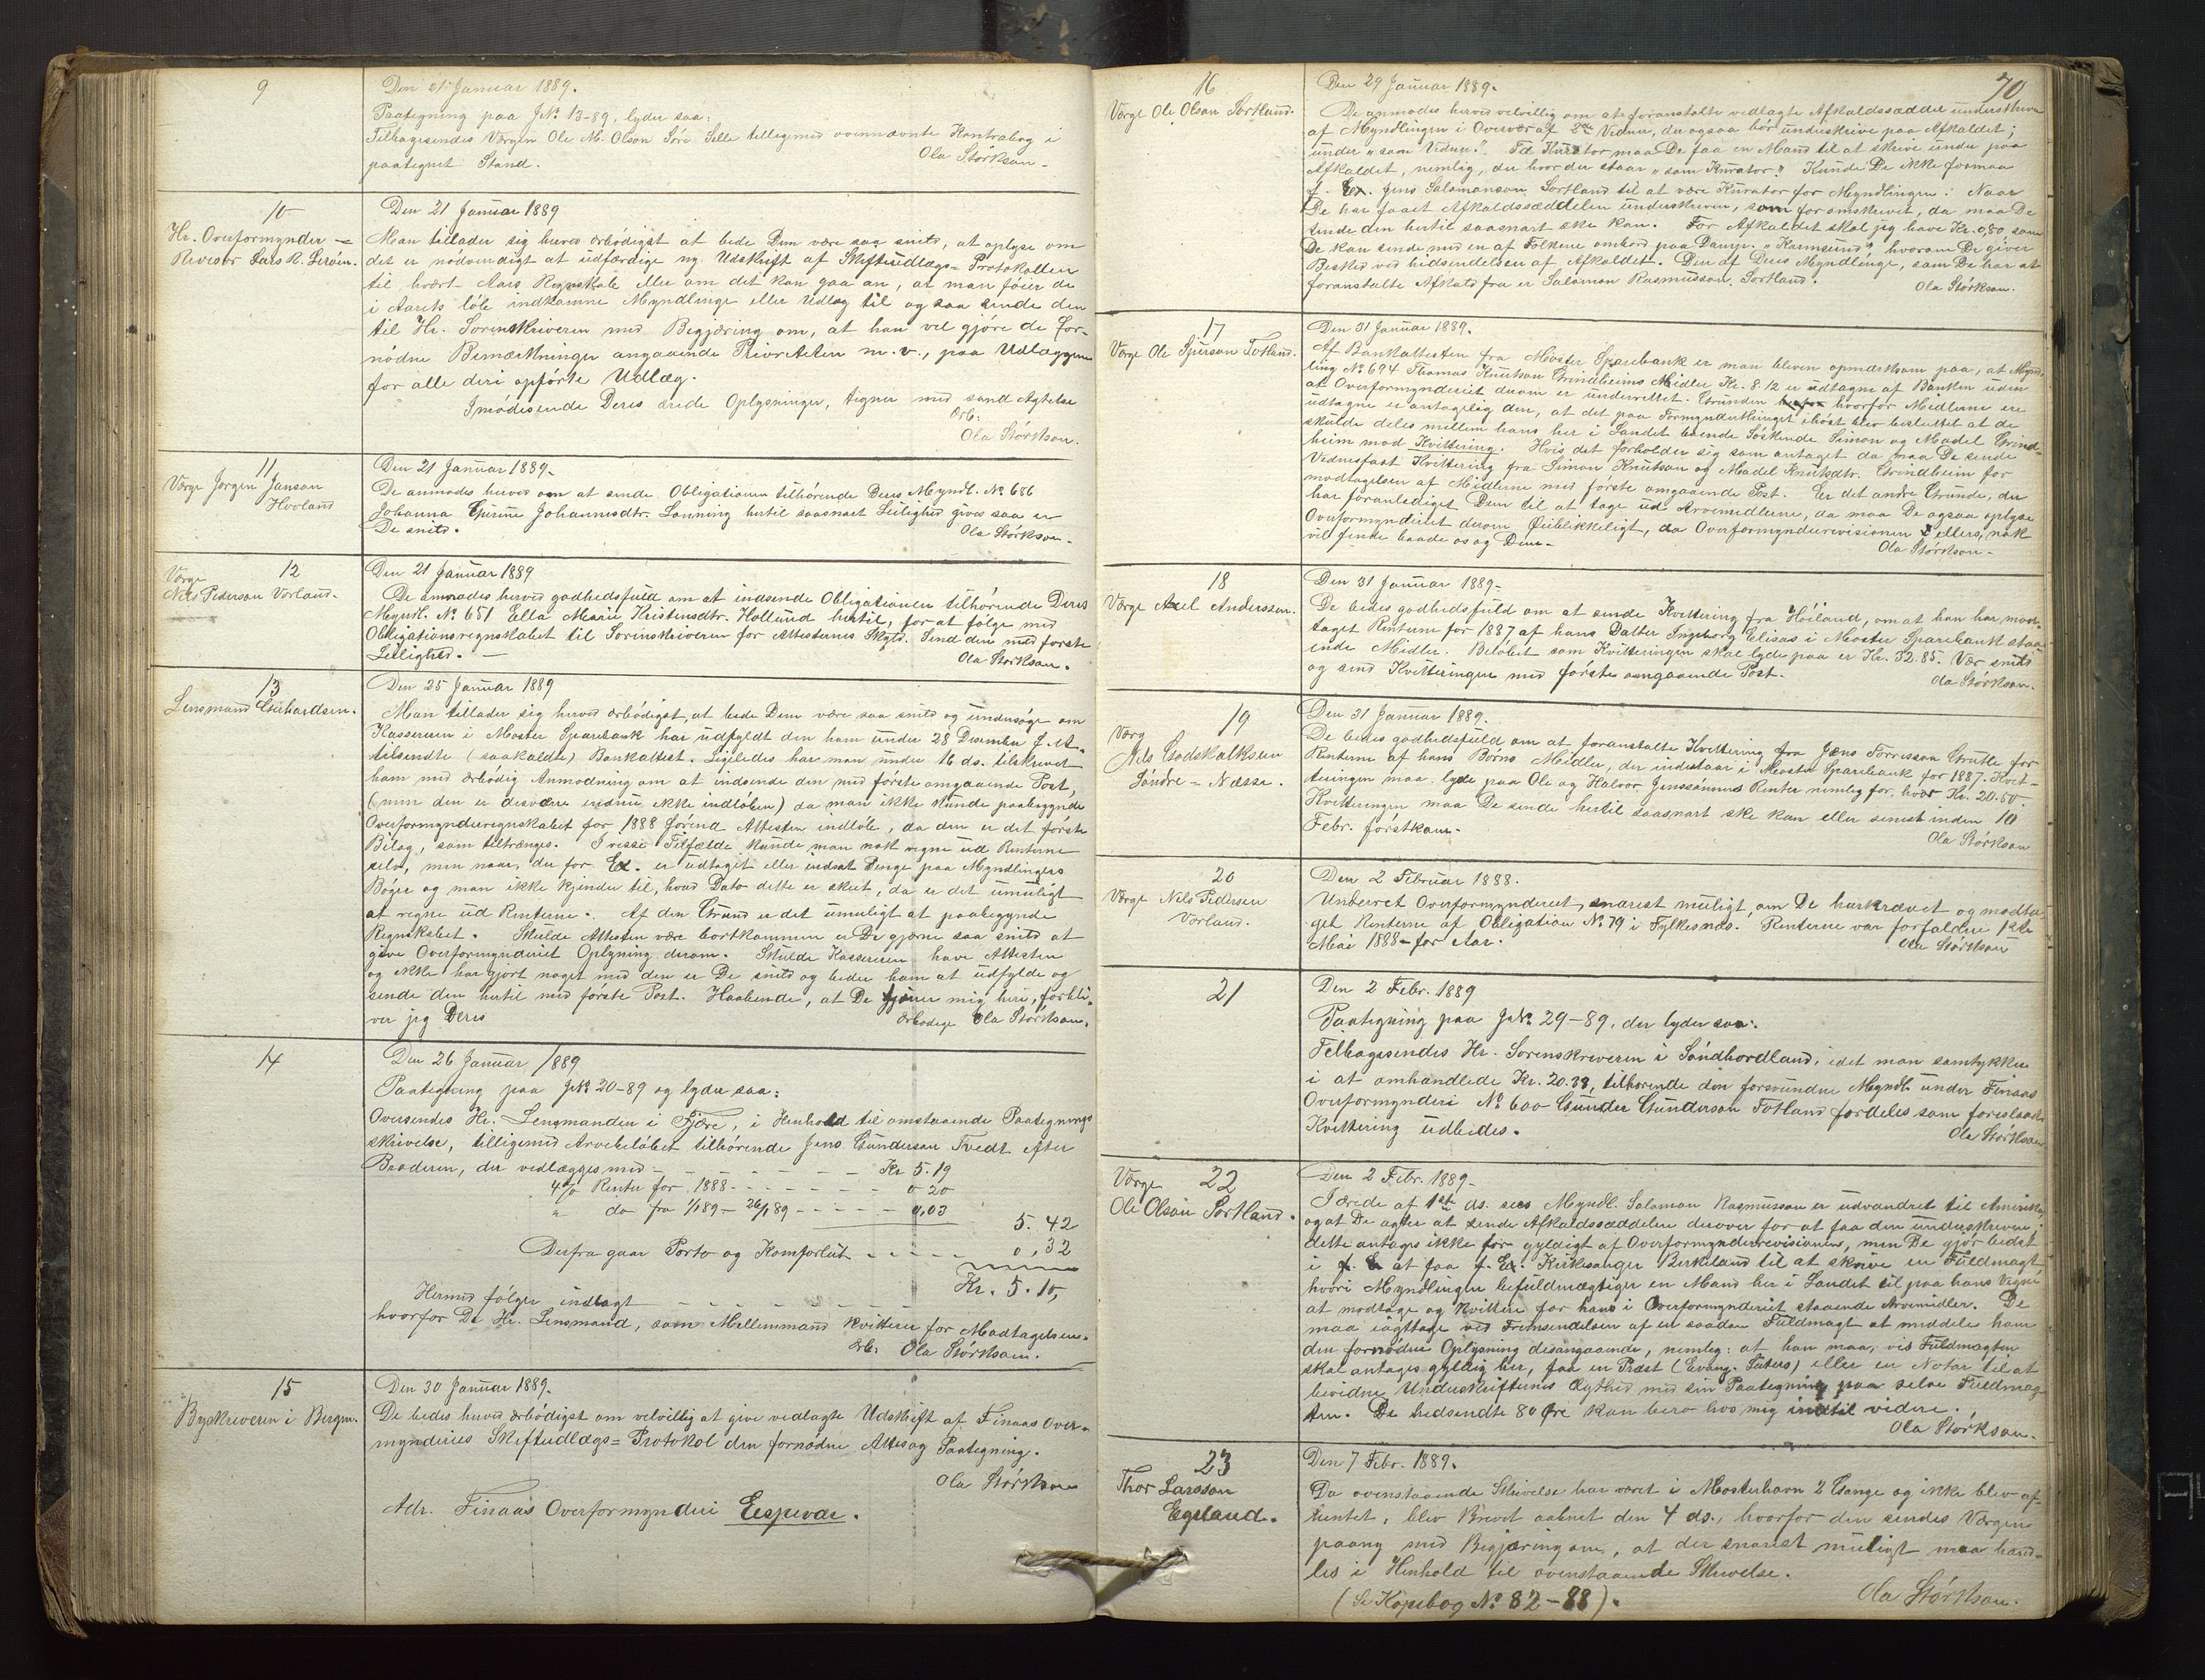 9
Den 21 Januar 1889.
Paategning paa J.№ 13-89, lyder saa:
Tilbagesendes Værgen Ole M. Olson Søre Selle tilligemed ovennævnte Kontrabog i
paategnet Stand.
Ola Størkson.
10
Hr. Overformynder =
Revisor Lars R. Lerøen.
Den 21 Januar 1889
Man tillader sig herved ærbødigst at bede Dem være saa snild, at oplyse om
det er nødvendigt at udfærdige ny Udskrift af Skifteudlægs = Protokollen
til hvert Aars Regnskab eller om det kan gaa an, at man føier de
i Aarets løb indkomne Myndlinge eller Udlæg til og saa sende den
til Hr. Sorenskriveren med Begjæring om, at han vel gjøre de for-
nødne Bemærkninger angaaende Prioriteten m. v., paa Udlæggene
for alle deri opførte Udlæg.
Imødeseende Deres ærede Oplysninger, tegner med sand Agtelse
Ærb.
Ola Størkson.
11
Værge Jørgen Janson
Hovland
Den 21 Januar 1889.
De anmodes herved om at sende Obligationen tilhørende Deres Myndl. № 686
Johanna Gurine Johannesdtr. Lønning hertil saasnart Leilighed gives saa er
De snild.
Ola Størkson.
12
Værge
Nels Pederson Vorland.
Den 21 Januar 1889
De anmodes herved godhedsfuld om at indsende Obligationen tilhørende Deres
Myndl. № 651 Ella Marie Kristensdtr. Hollund hertil, for at følge med
Obligationsregnskabet til Sorenskriveren for Attesternes Skyld. Send den med første
Leilighed. —
Ola Størkson.
13
Lensmand Gerhardsen.
Den 25 Januar 1889
Man tillader sig herved ærbødigst, at bede Dem være saa snild og undersøge om
Kassereren i Moster Sparebank har udfyldt den ham under 28 Desember f. A.
tilsendte (saakaldte) Bankattest. Ligeledes har man under 16 ds. tilskrevet
ham med ærbødig Anmodning om at indsende den med første omgaaende Post,
(men den er desværre endnu ikke indløben) da man ikke kunde paabegynde
Overformynderregnskabet for 1888 førend Attesten indløb, da den er det første
Bilag, som tiltrænges. I visse Tilfælde kunde man nok regne ud Renterne
selv, men naar, der for Ex. er udtaget eller indsat Penge paa Myndlingers
Bøger og man ikke kjender til, hvad Dato dette er skeet, da er det umuligt
at regne ud Renterne. Af den Grund er det umuligt at paabegynde
Regnskabet. Skulde Attesten være bortkommen er De gjerne saa snild at
give Overformynderiet Oplysning derom. Skulde Kassereren have Attesten
og ikke har gjort noget med den er De snild og beder ham at udfylde og
sende den hertil med første Post. Haabende, at De tjener mig heri, forbli-
ver jeg Deres
Ærbødige Ola Størkson.
14
Den 26 Januar 1889
Paategning paa J№ 20-89 og lyder saa:
Oversendes Hr. Lensmanden i Fjære, i Henhold til omstaaende Paategnings
skrivelse, tilligemed Arvebeløbet tilhørende Jens Gunderson Tvedt efter
Broderen, der vedlægges med - - - - - - - Kr 5.19
4% Renter for 1888 - - - - - - 0 20
" do fra 1/1 89 - 26/1 89 - - - - - 0,03
5. 42
Derfra gaar Porto og Komforlut - - - - - 0, 32
Kr. 5. 10,
Hermed følger indlagt - - - - - - - -
hvorfor De Hr. Lensmand, som Mellemmand kvitterer for Modtagelsen.
Ærb. Ola Størkson.
15
Byskriveren i Bergen.
Den 30 Januar 1889.
De bedes herved ærbødigst om velvillig at give vedlagte Udskrift af Finaas Over-
mynderies Skifteudlægs = Protokol den fornødne Attesog Paategning.
Ola Størkson
Adr. Finaas Overformynderi Espevær.
70
16
Værge Ole Olson Sortland.
Den 29 Januar 1889.
De anmodes herved velvillig om at foranstalte vedlagte Afkaldssæddel underskreven
af Myndlingen i Overvær af 2de Vidner, der ogsaa bør underskrive paa Afkaldet;
under "som Vidner". Til Kurator maa De faa en Mand til at skrive under paa
Afkaldet, nemlig, der hvor der staar "som Kurator". Kunde De ikke formaa
f. Ex. Jens Salamonson Sortland til at være Kurator for Myndlingen? Naar
De har faaet Afkaldssæddelen underskreven, som foromskrevet, da maa De
sende den hertil saasnart ske kan. For Afkaldet skal jeg have Kr. 0,80 som
De kan sende med en af Folkene ombord paa Damps. "Karmsund", hvorom De giver
Besked ved hidsendelsen af Afkaldet. Den af Deres Myndlinge, som De har at
foranstalte Afkald fra er Salamon Rasmusson Sortland.
Ola Størkson.
17
Værge Ole Sjurson Totland.
Den 31 Januar 1889.
Af Bankattesten fra Moster Sparebank er man bleven opmærksom paa, at Mynd-
ling № 694 Thomas Knutson Grindheims Midler Kr. 8.12 er udtagne af Banken uden
at Overformynderiet derom er underrettet. Grunden hvorfor Midlerne ere
udtagne er antagelig den, at det paa Formynderthinget ihøst blev besluttet at de
skulde deles mellem hans her i Landet boende Søskende Simon og Madel Grind-
heim mod Kvittering. Hvis det forholder sig som antaget da maa De sende
Vidnesfast Kvittering fra Simon Knutson og Madel Knutsdtr. Grindheim for
modtagelsen af Midlerne med første omgaaende Post. Er det andre Grunde, der
har foranlediget Dem til at tage ud Arvemidlerne, da maa De ogsaa oplyse
Overformynderiet derom Øieblikkeligt, da Overformynderrevisionen ellers, nok
vil finde baade os og Dem.
Ola Størkson.
18
Værge Axel Anderssen.
Den 31 Januar 1889.
De bedes godhedsfuld om at sende Kvittering fra Høiland, om at han har mod-
taget Renterne for 1887 af hans Datter Ingeborg Elisas i Moster Sparebank staa-
ende Midler. Beløbet som Kvitteringen skal lyde paa er Kr. 32.85. Vær snild
og send Kvitteringen med første omgaaende Post.
Ola Størkson.
19
Værg
Nils Godskalksen
Søndre = Næsse.
Den 31 Januar 1889.
De bedes godhedsfuld om at foranstalte Kvittering fra Jens Torresson Grutle for
Renterne af hans Børns Midler, der indestaar i Moster Sparebank for 1887. Kvit-
teringen maa lyde paa Ole og Halvor Jenssønnes Renter nemlig for hver Kr. 20.50.
Kvitteringen maa De sende hertil saasnart ske kan eller senest inden 10
Febr. førstkom.
Ola Størkson
20
Værge Nels Pederson
Vorland.
Den 2 Februar 1888.
Underret Overformynderiet, snarest muligt, om De har krævet og modta-
get Renterne af Obligation № 79 i Fylkesnes. Renterne var forfaldne 1ste
Mai 1888 - for Aar.
Ola Størkson
21
Den 2 Febr. 1889
Paategning paa J.№ 29-89, der lyder saa:
Tilbagesendes Hr. Sorenskriveren i Søndhordland, idet man samtykker
i at omhandlede Kr. 20.38, tilhørende den forsvundne Myndl. under Finaas
Overformynderi № 600 Gunder Gunderson Totland fordeles som foreslaaet.
Kvittering udbedes.
Ola Størkson
22
Værge
Ole Olson Sortland.
Den 2 Febr. 1889.
I ærede af 1ste ds. sees Myndl. Salamon Rasmusson er udvandret til Amerika
og at De agter at sende Afkaldssæddelen derover for at faa den underskreven;
dette antages ikke for gyldigt af Overformynderrevisionen, men De gjør bedst
i at faa f. Ex. Kirkesanger Birkeland til at skrive en Fuldmagt,
hvori Myndlingen befuldmægtiger en Mand her i Landet til paa hans Vegne
at modtage og kvittere for hans i Overformynderiet staaende Arvemidler. De
maa iagttage ved Fremsendelsen af en saadan Fuldmagt at meddele ham
den fornødne Oplysning desangaaende, nemlig: at han maa, vis Fuldmagten
skal antages gyldig her, faa en Præst (Evang. Luters) eller en Notar til at
bevidne Underskrifternes Ægthed med sin Paategning paa selve Fuldmag-
ten. De hidsendte 80 Øre kan bero hos mig indtil videre.
Ola Størkson.
23
Thor Larsson
Egeland.
Den 7 Febr. 1889.
Da ovenstaaende Skrivelse har været i Mosterhavn 2 Gange og ikke blev af-
hentet, blev Brevet aabnet den 4 ds., hvorfor den sendes Værgen
paany med Begjæring om, at der snarest muligt maa hand-
les i Henhold til ovenstaaende Skrivelse.
(Se Kopibog № 82-88).
Ola Størkson.